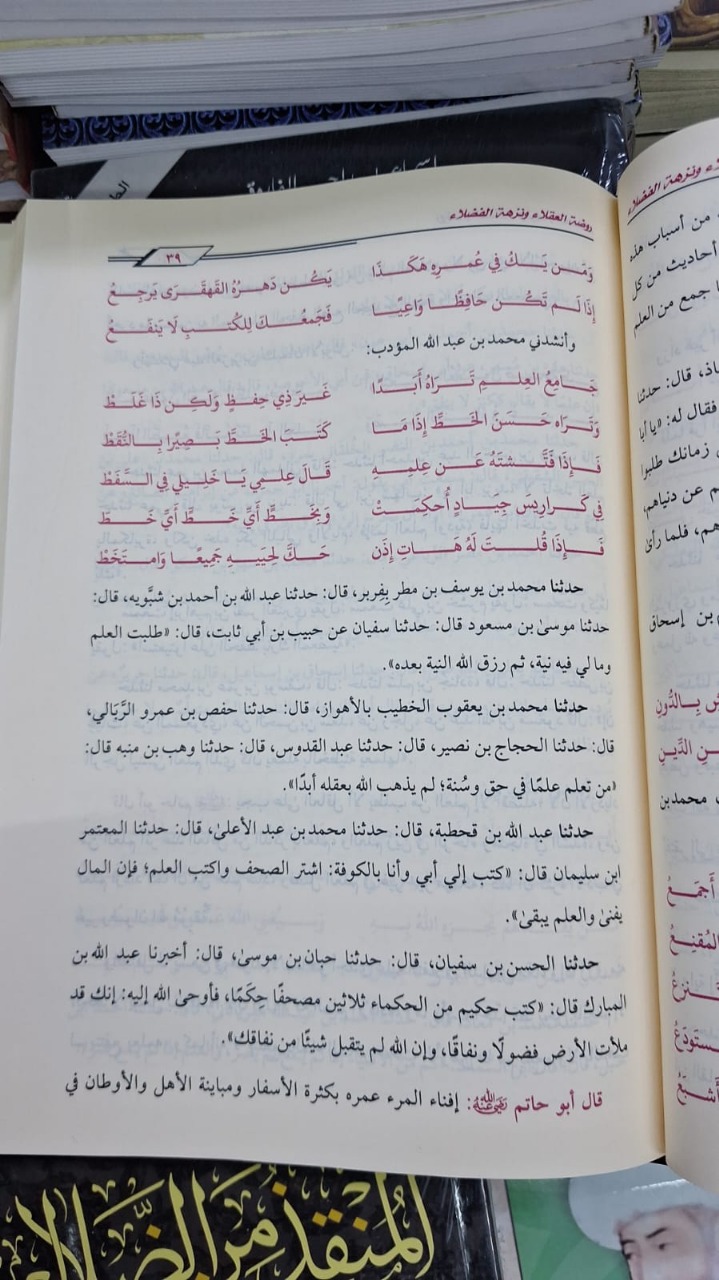 روضة العقلاء ونزهة الفضلاء
٣٩
وَمَـنْ يَـكُ فِي عُـمْـرِهِ هَكَـذَا يَـكُـنْ دَهـرُهُ القَهقَـرَى يَرجِـعُ
إِذَا لَـم تَكُـن حَافِظًـا وَاعِيًـا فَجَمعُـكَ لِلكُتـبِ لَا يَنفَـعُ
وأنشدني محمد بن عبد الله المؤدب:
جَـامِعَ العِلـمِ تَـرَاهُ أَبَـدًا غَيـرَ ذِي حِفـظٍ وَلَكِـن ذَا غَلَـطْ
وَتَـرَاهُ حَسَـنَ الخَـطِّ إِذَا مَـا كَتَـبَ الخَـطَّ بَصِيـرًا بِـالنُّقَطْ
فَـإِذَا فَتَّـشتَهُ عَـن عِلمِـهِ قَـالَ عِلمِـي يَـا خَلِيلِـي فِي السَّفَطْ
فِي كَـرَارِيسَ جِيَـادٍ أُحكِمَـتْ وَبِخَـطٍّ أَيِّ خَـطٍّ أَيِّ خَـطْ
فَـإِذَا قُلـتَ لَهُ هَـاتِ إِذَن حَـكَّ لِحيَيـهِ جَمِيعًـا وَامتَخَطْ
حدثنا محمد بن يوسف بن مطر بِفِربر، قال: حدثنا عبد الله بن أحمد بن شبُّويه، قال:
حدثنا موسىٰ بن مسعود قال: حدثنا سفيان عن حبيب بن أبي ثابت، قال: «طلبت العلم
وما لي فيه نية، ثم رزق الله النية بعده».
حدثنا محمد بن يعقوب الخطيب بالأهواز، قال: حدثنا حفص بن عمرو الرَّبَالي،
قال: حدثنا الحجاج بن نصير، قال: حدثنا عبد القدوس، قال: حدثنا وهب بن منبه قال:
«من تعلم علمًا في حق وسُنة؛ لم يذهب الله بعقله أبدًا».
حدثنا عبد الله بن قحطبة، قال: حدثنا محمد بن عبد الأعلىٰ، قال: حدثنا المعتمر
ابن سليمان قال: «كتب إلي أبي وأنا بالكوفة: اشتر الصحف واكتب العلم؛ فإن المال
يفنىٰ والعلم يبقىٰ».
حدثنا الحسن بن سفيان، قال: حدثنا حبان بن موسىٰ، قال: أخبرنا عبد الله بن
المبارك قال: «كتب حكيم من الحكماء ثلاثين مصحفًا حِكَمًا، فأوحىٰ الله إليه: إنك قد
ملأت الأرض فضولًا ونفاقًا، وإن الله لم يتقبل شيئًا من نفاقك».
قال أبو حاتم رَضِيَ اللهُ عَنْهُ: إفناء المرء عمره بكثرة الأسفار ومباينة الأهل والأوطان في
ونزهة الفضلاء
من أسباب هذه
أحاديث من كل
جمع من العلم
قال: حدثنا
فقال له: «يا أبا
زمانك طلبوا
عن دنياهم،
فلما رأىٰ
بن إسحاق
بِـالدُّونِ
الدِّيـنِ
محمد بن
أَجمَـعُ
المُقنِـعُ
أَشبَـعُ
المُنقِذُ مِنَ الضَّلَالِ